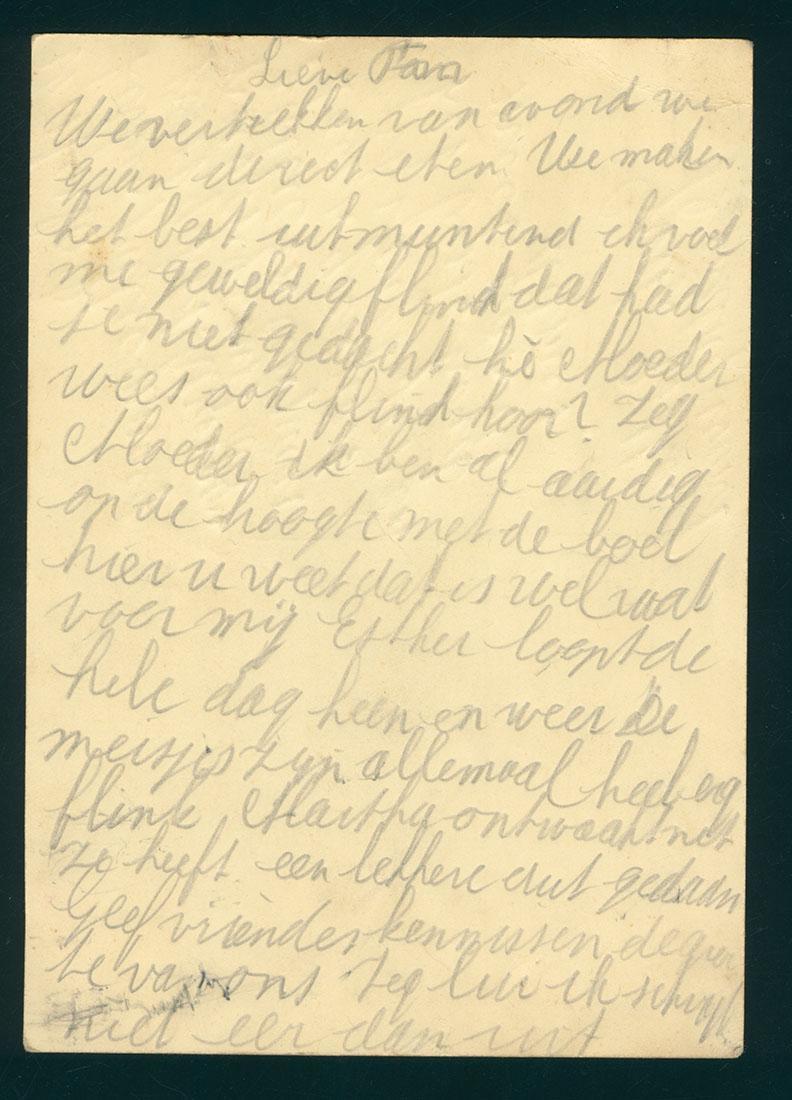 Lieve Fam
We vertrekken van avond we
gaan direct eten. We maken
het best uitmuntend ik voel
me geweldig flink dat had
je niet gedacht hè Moeder
wees ook flink hoor? Zeg
Moeder, ik ben al aardig
op de hoogte met de boel
hier u weet dat is wel wat
voor mij Esther loopt de
hele dag heen en weer De
meisjes zijn allemaal heel erg
flink Martha ontwaakt net
ze heeft een lekkere dut gedaan
Geef vrienden kennissen de groe
te van ons Zeg lui ik schrijf
niet eer dan uit